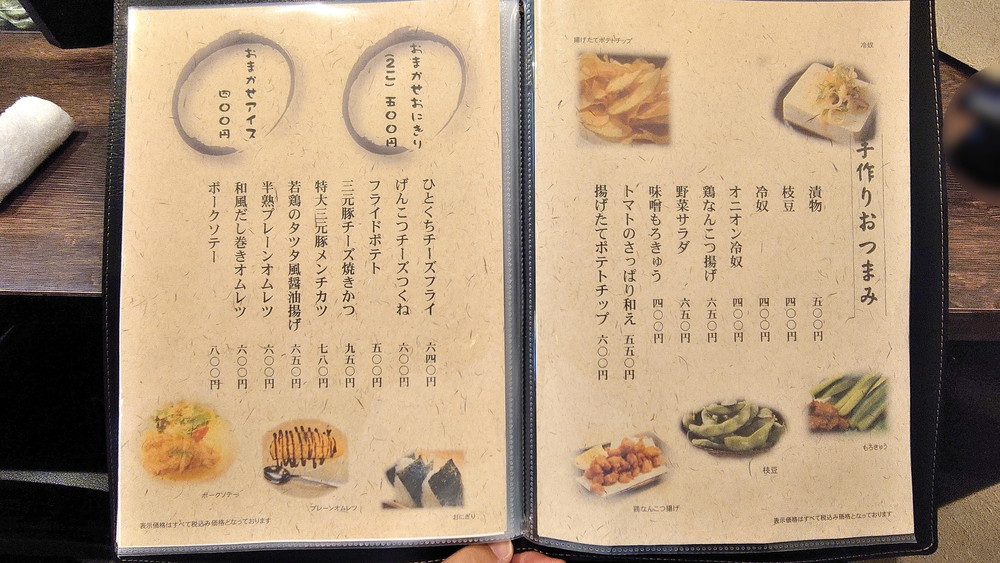 揚げたてポテトチップ
冷奴
手作りおつまみ
漬物 五〇〇円
枝豆 四〇〇円
冷奴 四〇〇円
オニオン冷奴 四〇〇円
鶏なんこつ揚げ 六五〇円
野菜サラダ 六五〇円
味噌もろきゅう 四〇〇円
トマトのさっぱり和え 五五〇円
揚げたてポテトチップ 六〇〇円
もろきゅう
枝豆
鶏なんこつ揚げ
表示価格はすべて税込み価格となっております
おまかせおにぎり
(2こ) 五〇〇円
おまかせアイス
四〇〇円
ひとくちチーズフライ 六四〇円
げんこつチーズつくね 六〇〇円
フライドポテト 五〇〇円
三元豚チーズ焼きかつ 九五〇円
特大三元豚メンチカツ 七八〇円
若鶏のタツタ風醤油揚げ 六五〇円
半熟プレーンオムレツ 六〇〇円
和風だし巻きオムレツ 六〇〇円
ポークソテー 八〇〇円
ポークソテー
プレーンオムレツ
おにぎり
表示価格はすべて税込み価格となっております